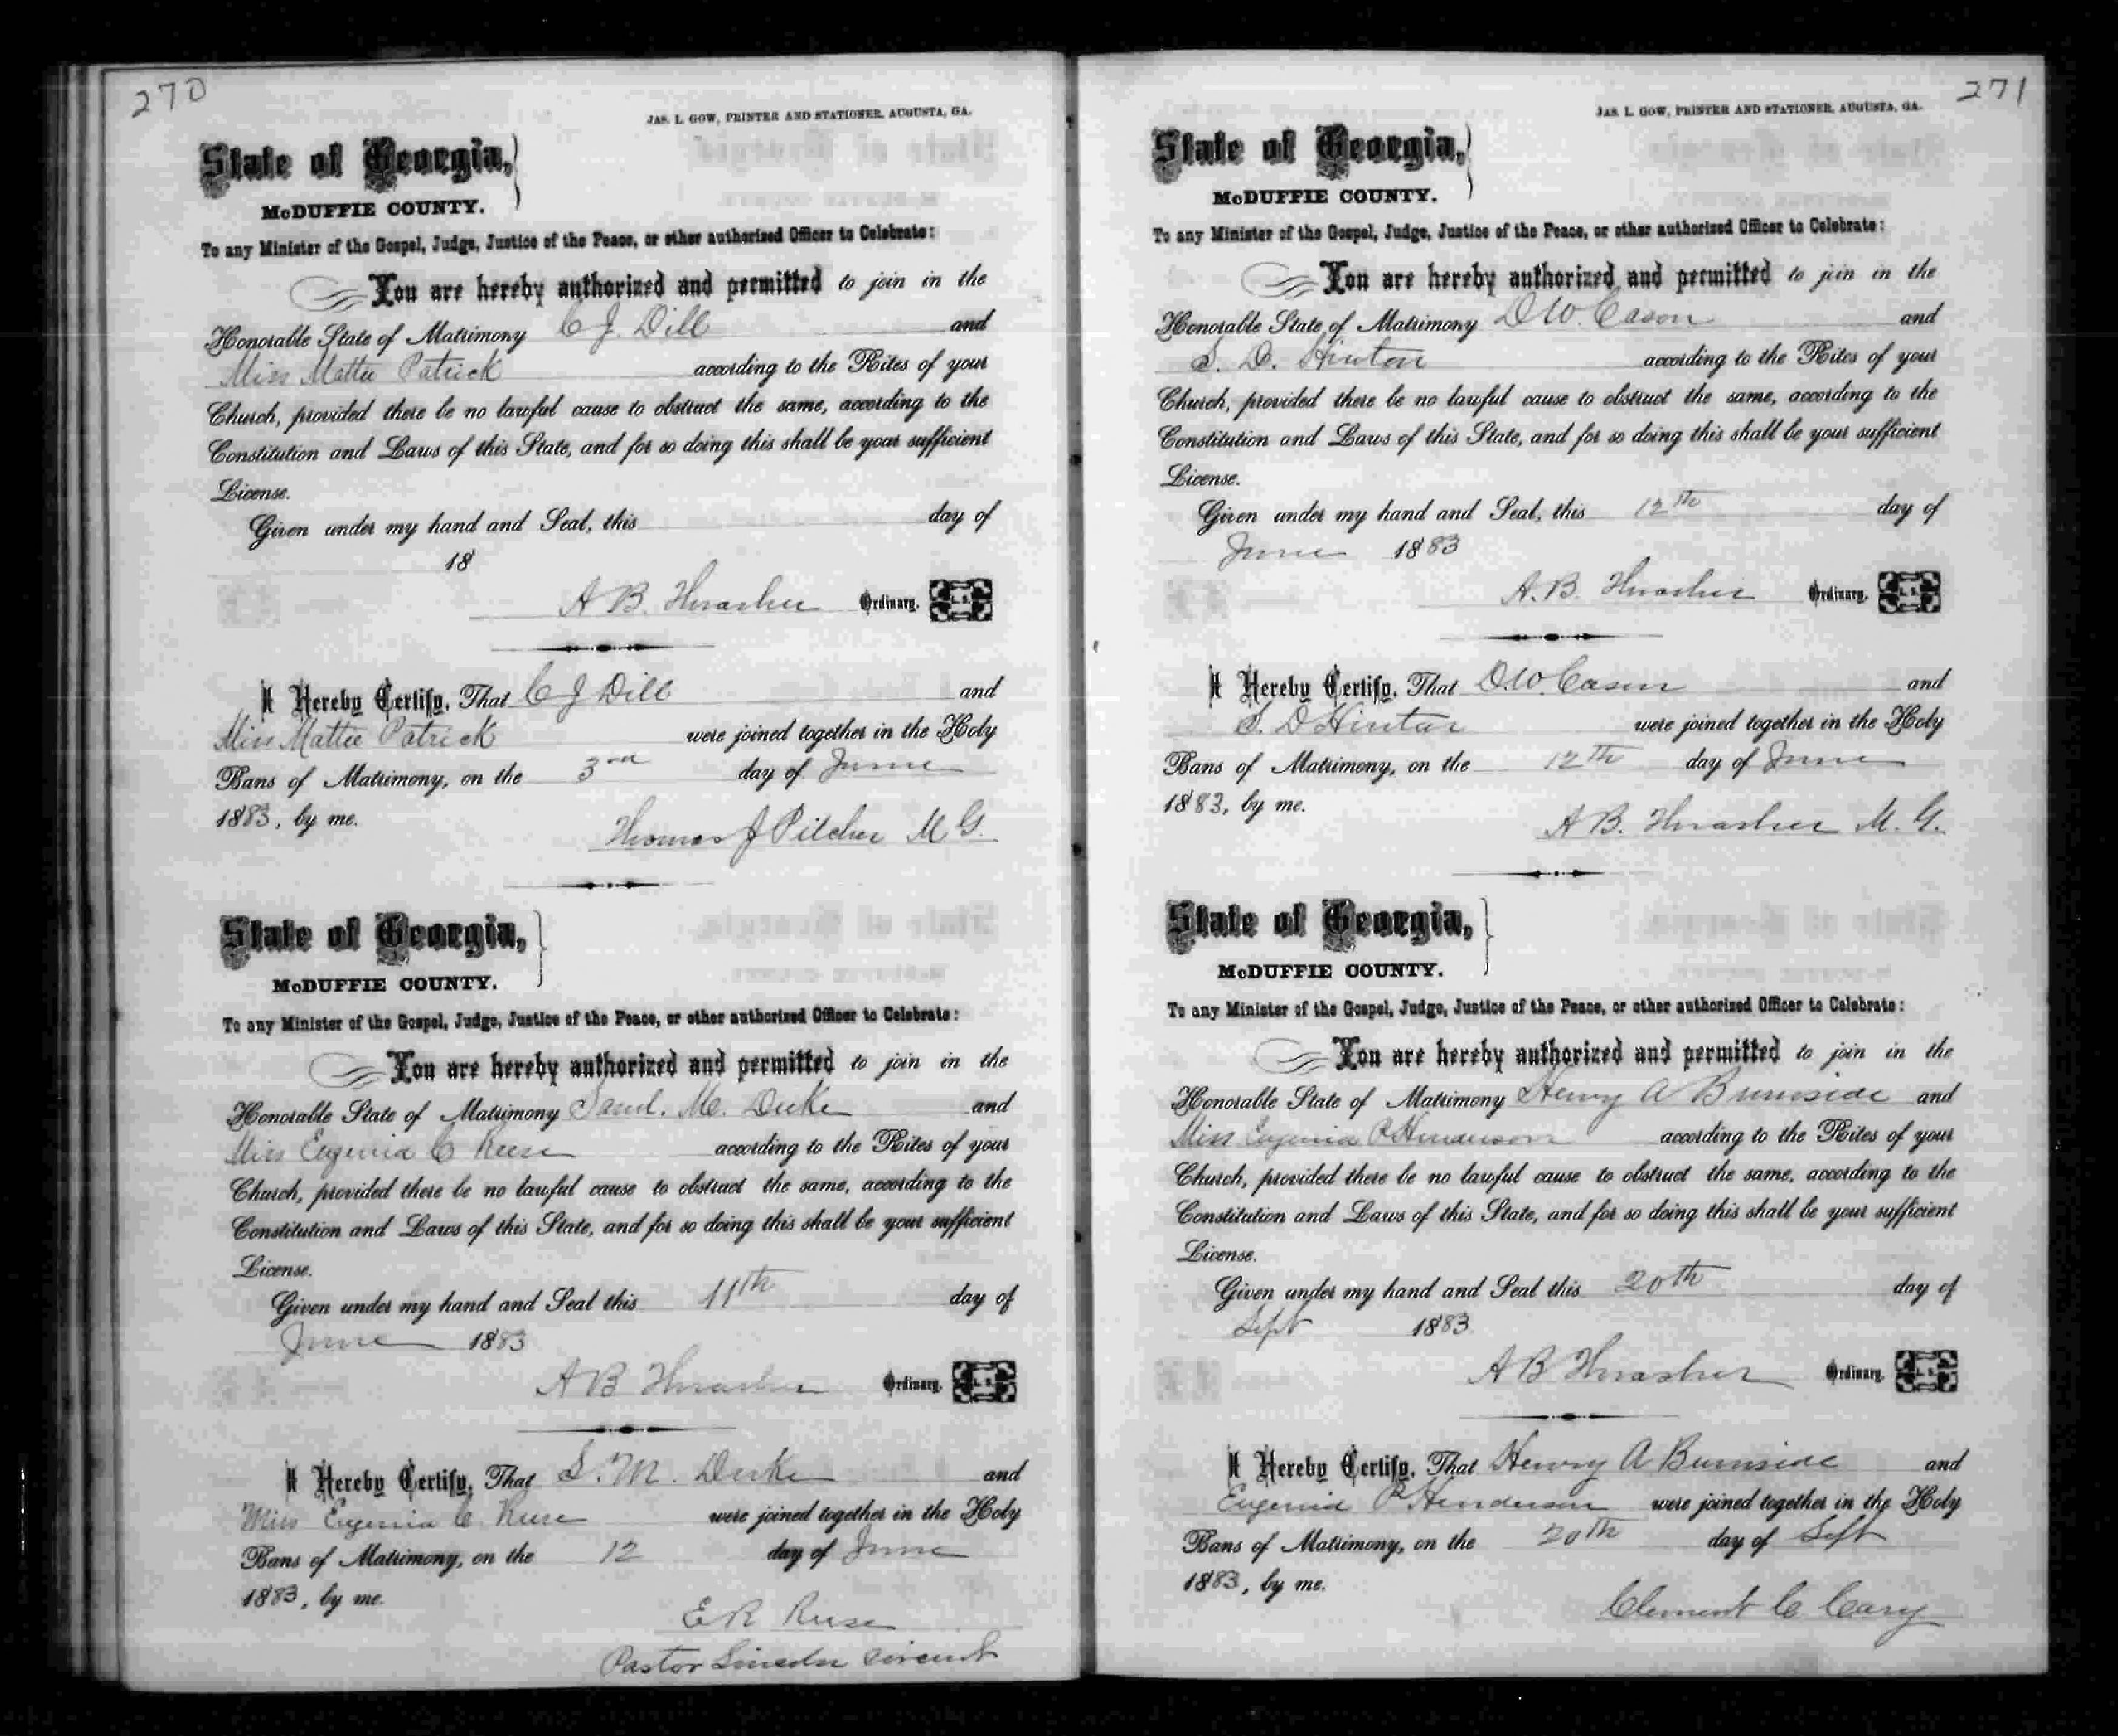 270
JAS. L. GOW, PRINTER AND STATIONER, AUGUSTA, GA.
State of Georgia,
McDUFFIE COUNTY.
To any Minister of the Gospel, Judge, Justice of the Peace, or other authorized Officer to Celebrate:
You are hereby authorized and permitted to join in the
Honorable State of Matrimony C J. Dill and
Miss Mattie Patrick according to the Rites of your
Church, provided there be no lawful cause to obstruct the same, according to the
Constitution and Laws of this State, and for so doing this shall be your sufficient
License.
Given under my hand and Seal, this day of
18
A B. Thrasher Ordinary. L. S.
I Hereby Certify, That C J Dill and
Miss Mattie Patrick were joined together in the Holy
Bans of Matrimony, on the 3rd day of June
1883, by me.
Thomas J Pilcher M G.
State of Georgia,
McDUFFIE COUNTY.
To any Minister of the Gospel, Judge, Justice of the Peace, or other authorized Officer to Celebrate:
You are hereby authorized and permitted to join in the
Honorable State of Matrimony Saml. M. Duke and
Miss Eugenia C Reese according to the Rites of your
Church, provided there be no lawful cause to obstruct the same, according to the
Constitution and Laws of this State, and for so doing this shall be your sufficient
License.
Given under my hand and Seal this 11th day of
June 1883
A B Thrasher Ordinary. L. S.
I Hereby Certify, That S. M. Duke and
Miss Eugenia C. Reese were joined together in the Holy
Bans of Matrimony, on the 12 day of June
1883, by me.
E R Reese
Pastor Lincoln circuit
271
JAS. L. GOW, PRINTER AND STATIONER, AUGUSTA, GA.
State of Georgia,
McDUFFIE COUNTY.
To any Minister of the Gospel, Judge, Justice of the Peace, or other authorized Officer to Celebrate:
You are hereby authorized and permitted to join in the
Honorable State of Matrimony D W. Cason and
S. D. Hinton according to the Rites of your
Church, provided there be no lawful cause to obstruct the same, according to the
Constitution and Laws of this State, and for so doing this shall be your sufficient
License.
Given under my hand and Seal, this 12th day of
June 1883
A. B. Thrasher Ordinary. L. S.
I Hereby Certify, That D. W. Cason and
S. D Hinton were joined together in the Holy
Bans of Matrimony, on the 12th day of June
1883, by me.
A B. Thrasher M. G.
State of Georgia,
McDUFFIE COUNTY.
To any Minister of the Gospel, Judge, Justice of the Peace, or other authorized Officer to Celebrate:
You are hereby authorized and permitted to join in the
Honorable State of Matrimony Henry A Burnside and
Miss Eugenia P Henderson according to the Rites of your
Church, provided there be no lawful cause to obstruct the same, according to the
Constitution and Laws of this State, and for so doing this shall be your sufficient
License.
Given under my hand and Seal this 20th day of
Sept 1883
A B Thrasher Ordinary. L. S.
I Hereby Certify, That Henry A Burnside and
Eugenia P Henderson were joined together in the Holy
Bans of Matrimony, on the 20th day of Sept
1883, by me.
Clement C Cary